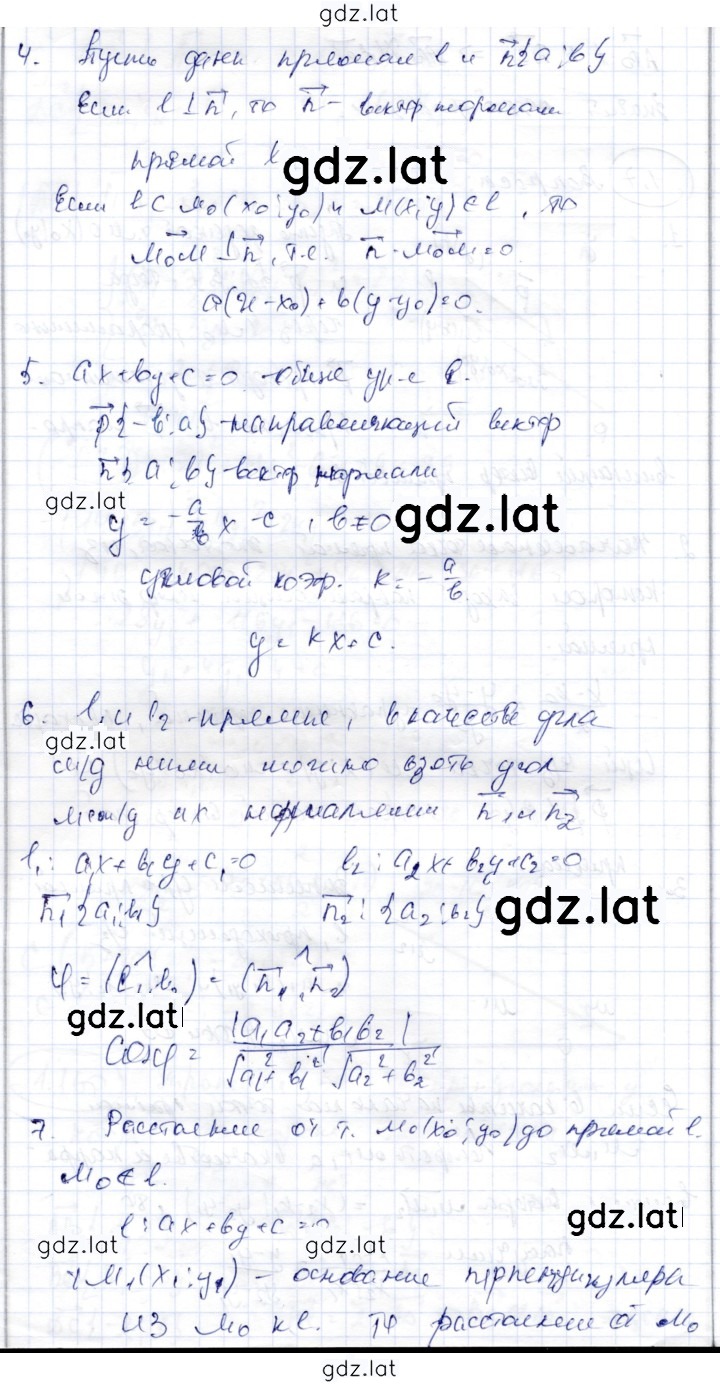 gdz.lat
4. Пусть дани прямая l и n{a;b}
Если l⊥n, то n - вектор нормали
прямой l
gdz.lat
Если l ⊂ M₀(x₀;y₀) и M(x;y)∈l, то
M₀M⊥n, т.е. n·M₀M=0
a(x-x₀)+b(y-y₀)=0.
5. ax+by+c=0 - общее ур-е l.
p{-b;a} - направляющий вектор
n{a;b} - вектор нормали
gdz.lat
y = -a/b x - c, b≠0
gdz.lat
угловой коэф. k = -a/b
y = kx+c.
6. l₁ и l₂ - прямые, в качестве угла
gdz.lat
м/д ними можно взять угол
между их нормалями n₁ и n₂
l₁: a₁x+b₁y+c₁=0 l₂: a₂x+b₂y+c₂=0
n₁{a₁;b₁} n₂: {a₂;b₂}
gdz.lat
φ = (l₁^l₂) = (n₁^n₂)
gdz.lat
cosφ = |a₁a₂+b₁b₂| / √a₁²+b₁² √a₂²+b₂²
7. Расстояние от т. M₀(x₀;y₀) до прямой l.
M₀∉l.
gdz.lat
l: ax+by+c=0
gdz.lat gdz.lat
M₁(x₁;y₁) - основание перпендикуляра
из M₀ к l. расстояние от M₀
gdz.lat